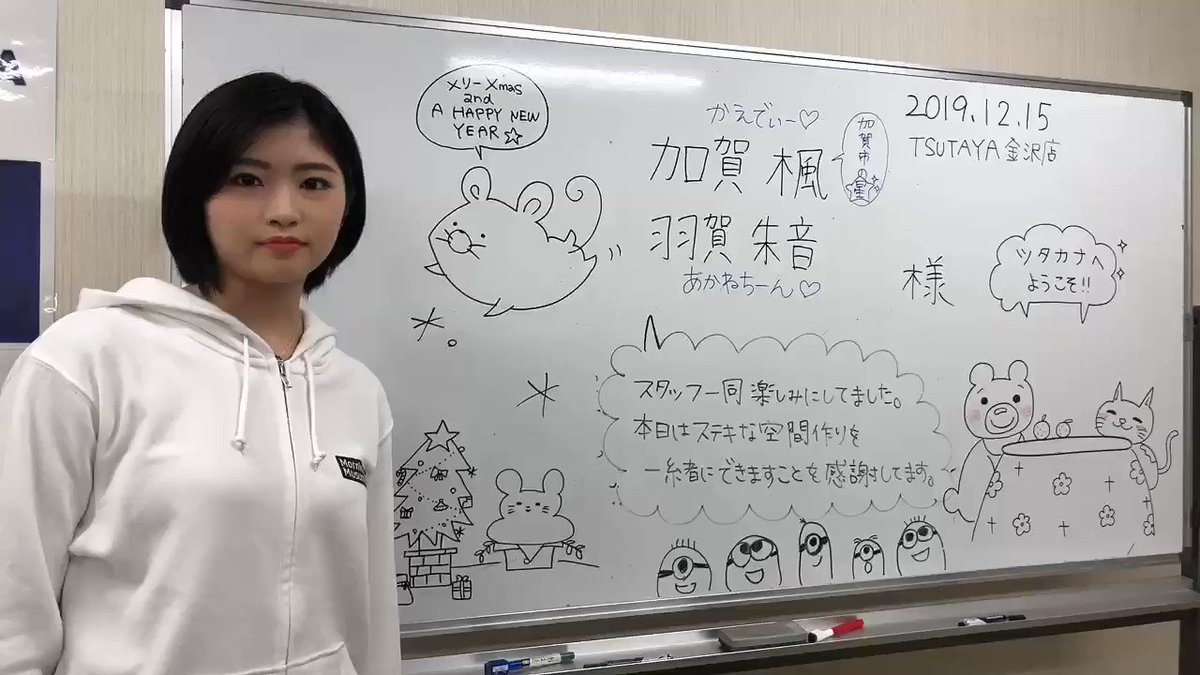 メリーXmas
and
A HAPPY NEW
YEAR☆
かえでぃー♡
加賀 楓
加賀市の星
羽賀 朱音
あかねちーん♡
様
2019.12.15
TSUTAYA 金沢店
ツタカナへ
ようこそ!!
スタッフ一同 楽しみにしてました。
本日はステキな空間作りを
一緒にできますことを感謝してます。
A